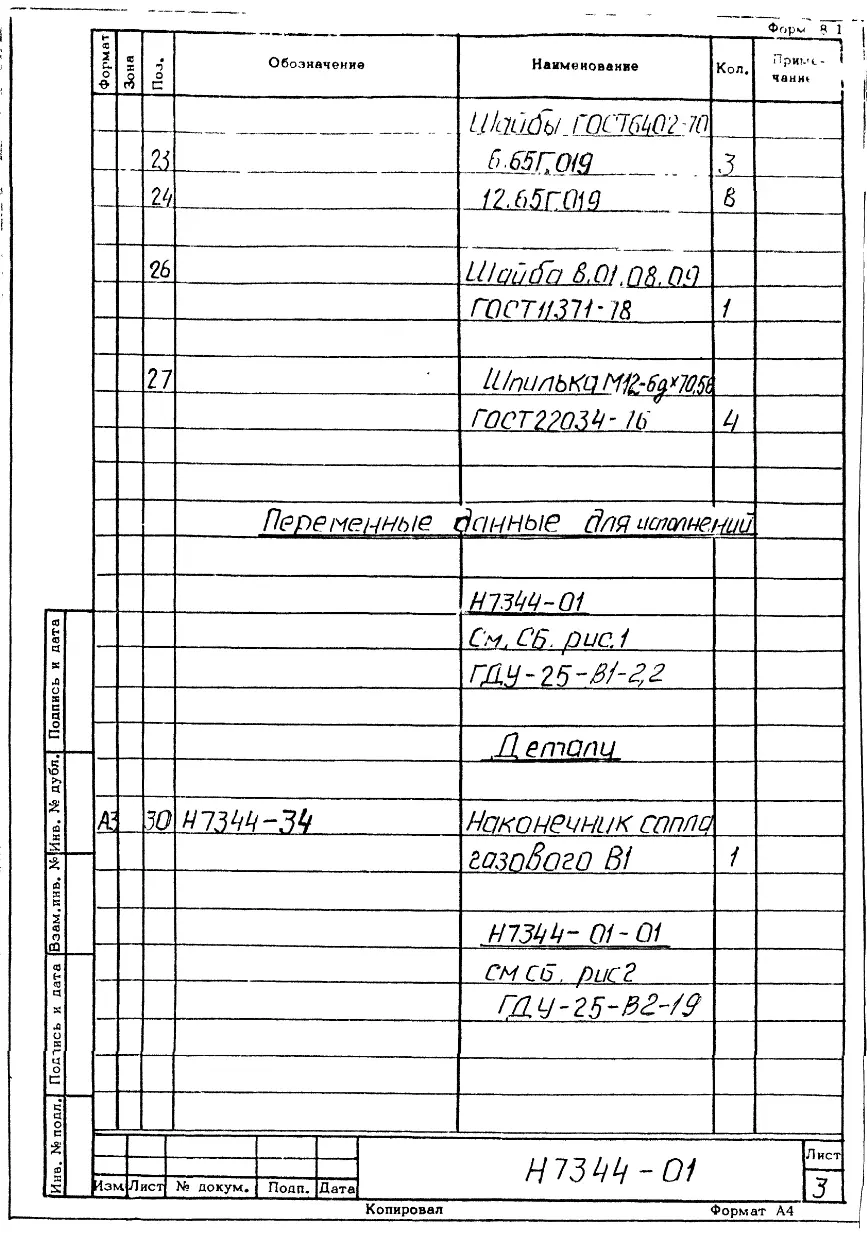 Форм 8 1
Формат Зона Поз. Обозначение Наименование Кол. Приме-
чание
Шайбы ГОСТ6402-70
23 6.65Г.019 3
24 12.65Г.019 8
26 Шайба 8.01.08.09
ГОСТ11371-78 1
27 Шпилька М12-6gх70.56
ГОСТ22034-76 4
Переменные данные для исполнений
Н7344-01
См. СБ. рис.1
ГДУ-25-В1-2,2
Детали
А3 30 Н7344-34 Наконечник сопла
газового В1 1
Н7344-01-01
см СБ. рис2
ГДУ-25-В2-19
Подпись и дата
Инв. № дубл.
Взам.инв. №
Подпись и дата
Инв. № подл.
Н7344-01
Лист
3
Изм Лист № докум. Подп. Дата
Копировал Формат А4